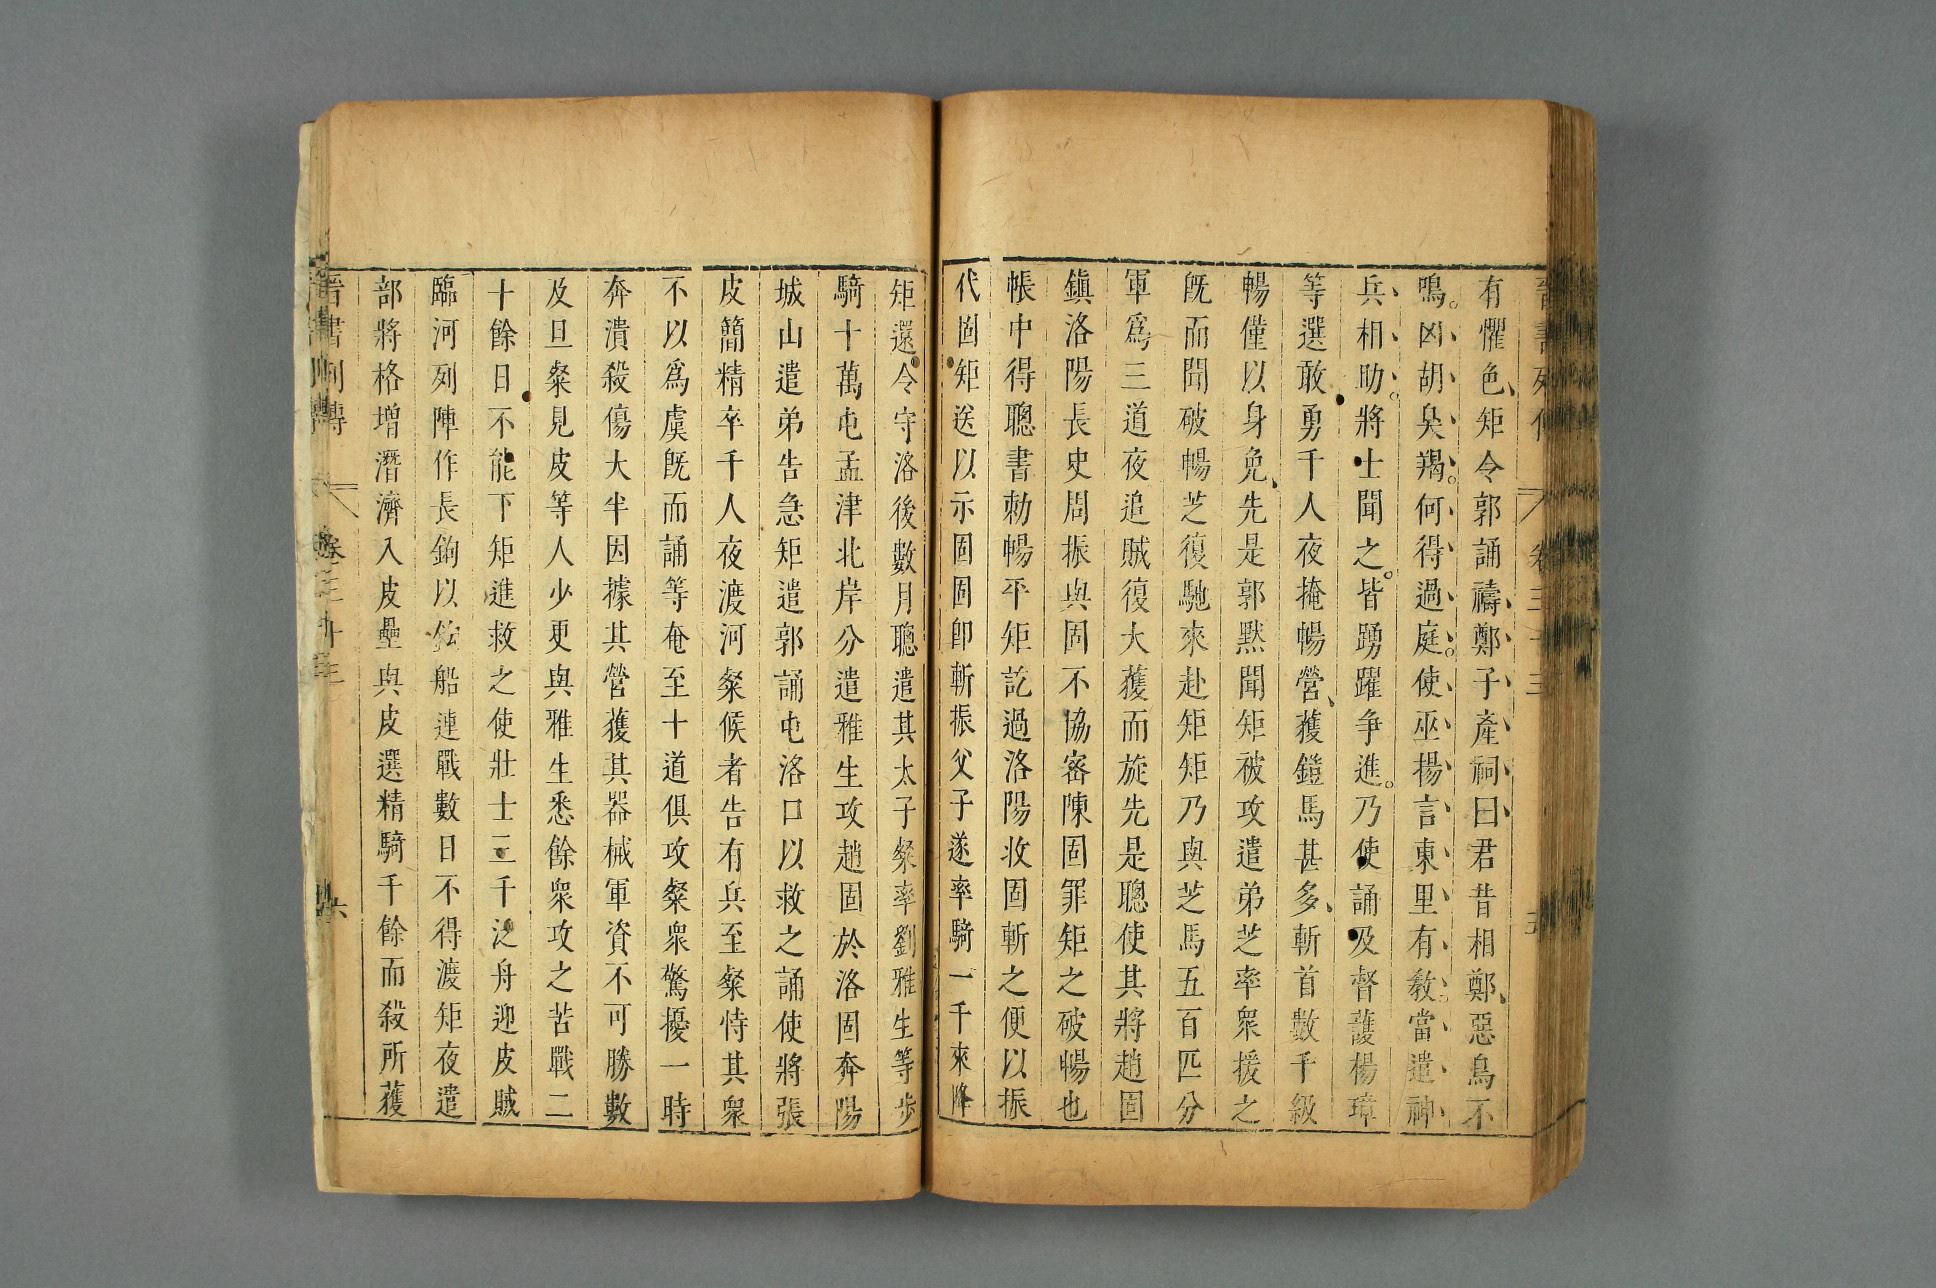 晉書列傳 卷三十三 五
有懼色矩令郭誦禱鄭子產祠曰君昔相鄭惡鳥不
鳴凶胡臭羯何得過庭使巫揚言東里有教當遣神
兵相助將士聞之皆踴躍爭進乃使誦及督護楊璋
等選敢勇千人夜掩暢營獲鎧馬甚多斬首數千級
暢僅以身免先是郭默聞矩被攻遣弟芝率衆援之
旣而聞破暢芝復馳來赴矩矩乃與芝馬五百匹分
軍爲三道夜追賊復大獲而旋先是聰使其將趙固
鎮洛陽長史周振與固不協密陳固罪矩之破暢也
帳中得聰書勅暢平矩訖過洛陽收固斬之便以振
代固矩送以示固固卽斬振父子遂率騎一千來降
矩還令守洛後數月聰遣其太子粲率劉雅生等步
騎十萬屯孟津北岸分遣雅生攻趙固於洛固奔陽
城山遣弟告急矩遣郭誦屯洛口以救之誦使將張
皮簡精卒千人夜渡河粲候者告有兵至粲恃其衆
不以爲虞旣而誦等奄至十道俱攻粲衆驚擾一時
奔潰殺傷大半因據其營獲其器械軍資不可勝數
及旦粲見皮等人少更與雅生悉餘衆攻之苦戰二
十餘日不能下矩進救之使壯士三千泛舟迎皮賊
臨河列陣作長鉤以鈎船連戰數日不得渡矩夜遣
部將格增潛濟入皮壘與皮選精騎千餘而殺所獲
晉書列傳 卷三十三 六